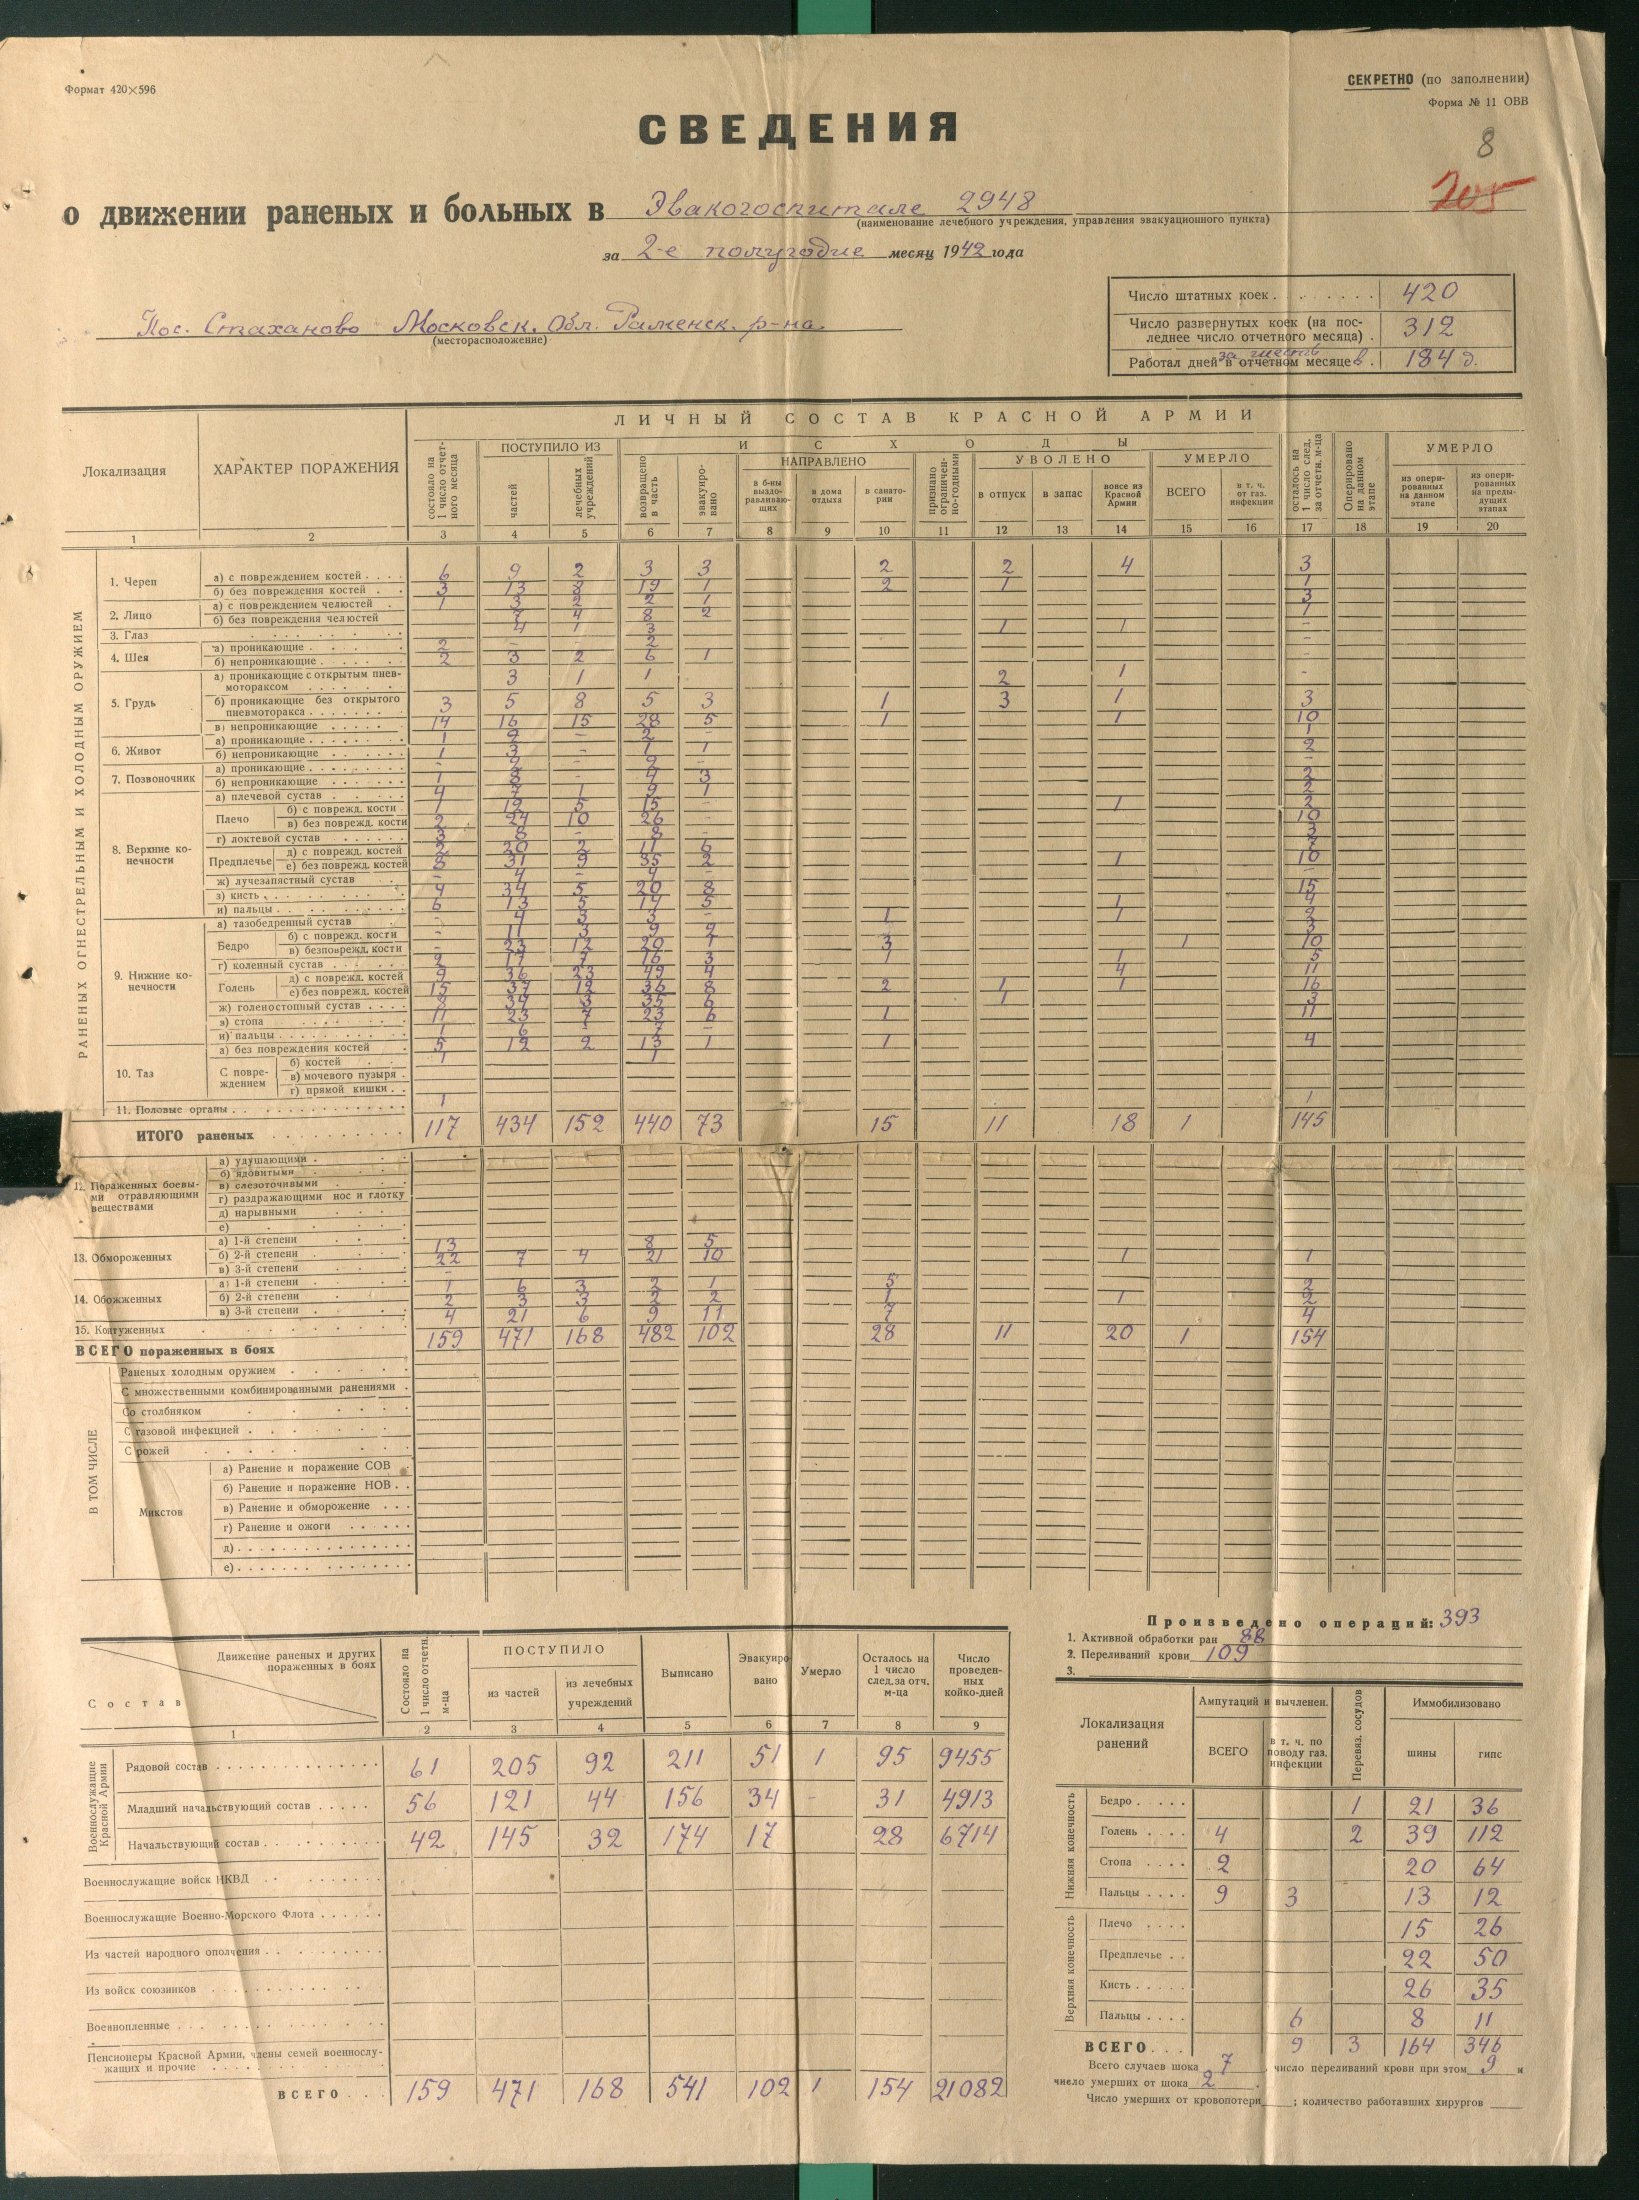 Формат 420×596
СЕКРЕТНО (по заполнении)
Форма № 11 ОВВ
8
205
СВЕДЕНИЯ
о движении раненых и больных в Эвакогоспитале 2948
(наименование лечебного учреждения, управления эвакуационного пункта)
за 2-е полугодие месяц 1942 года
Пос. Стаханово Московск. Обл. Раменск. р-на.
(месторасположение)
Число штатных коек 420
Число развернутых коек (на последнее число отчетного месяца) 312
Работал дней за шесть в отчетном месяцев 184 д.
ЛИЧНЫЙ СОСТАВ КРАСНОЙ АРМИИ
Локализация
ХАРАКТЕР ПОРАЖЕНИЯ
состояло на 1 число отчетного месяца
ПОСТУПИЛО ИЗ
частей
лечебных учреждений
ИСХОДЫ
возвращено в часть
эвакуировано
НАПРАВЛЕНО
в б-ны выздоравливающих
в дома отдыха
в санатории
признано ограниченно-годными
УВОЛЕНО
в отпуск
в запас
вовсе из Красной Армии
УМЕРЛО
ВСЕГО
в т. ч. от газ. инфекции
осталось на 1 число след. за отчетн. м-ца
Оперировано на данном этапе
УМЕРЛО
из оперированных на данном этапе
из оперированных на предыдущих этапах
1 2 3 4 5 6 7 8 9 10 11 12 13 14 15 16 17 18 19 20
РАНЕНЫХ ОГНЕСТРЕЛЬНЫМ И ХОЛОДНЫМ ОРУЖИЕМ
1. Череп
а) с повреждением костей 6 9 2 3 3 2 2 4 3
б) без повреждения костей 3 13 8 19 1 2 1 1
2. Лицо
а) с повреждением челюстей 1 3 2 2 1 3
б) без повреждения челюстей 7 4 8 2 1
3. Глаз 4 1 3 1 1 -
4. Шея
а) проникающие 2 - - 2 -
б) непроникающие 2 3 2 6 1 -
5. Грудь
а) проникающие с открытым пневмотораксом 3 1 1 2 1 -
б) проникающие без открытого пневмоторакса 3 5 8 5 3 1 3 1 3
в) непроникающие 14 16 15 28 5 1 1 10
6. Живот
а) проникающие 1 2 - 2 - 1
б) непроникающие 1 3 - 1 1 2
7. Позвоночник
а) проникающие - 2 - 2 - -
б) непроникающие 1 8 - 4 3 2
8. Верхние конечности
а) плечевой сустав 4 7 1 9 1 2
Плечо
б) с поврежд. кости 1 12 5 15 - 1 2
в) без поврежд. кости 2 24 10 26 - 10
г) локтевой сустав 3 8 - 8 - 3
Предплечье
д) с поврежд. костей 2 20 2 11 6 7
е) без поврежд. костей 8 31 9 35 2 1 10
ж) лучезапястный сустав - 4 - 4 - -
з) кисть 4 34 5 20 8 15
и) пальцы 6 13 5 14 5 1 4
9. Нижние конечности
а) тазобедренный сустав - 4 3 3 - 1 1 2
Бедро
б) с поврежд. кости - 11 3 9 2 3
в) без поврежд. кости - 23 12 20 1 3 1 10
г) коленный сустав 2 17 7 16 3 1 1 5
Голень
д) с поврежд. костей 9 36 23 49 4 4 11
е) без поврежд. костей 15 37 12 36 8 2 1 1 16
ж) голеностопный сустав 8 34 3 35 6 1 3
з) стопа 11 23 7 23 6 1 11
и) пальцы 1 6 - 7 -
10. Таз
а) без повреждения костей 5 12 2 13 1 1 4
С повреждением
б) костей 1 1
в) мочевого пузыря
г) прямой кишки
11. Половые органы 1 1
ИТОГО раненых 117 434 152 440 73 15 11 18 1 145
12. Пораженных боевыми отравляющими веществами
а) удушающими
б) ядовитыми
в) слезоточивыми
г) раздражающими нос и глотку
д) нарывными
е)
13. Обмороженных
а) 1-й степени 13 8 5
б) 2-й степени 22 7 4 21 10 1 1
в) 3-й степени -
14. Обожженных
а) 1-й степени 1 6 3 2 1 5 2
б) 2-й степени 2 3 3 2 2 1 1 2
в) 3-й степени 4 21 6 9 11 7 4
15. Контуженных
ВСЕГО пораженных в боях 159 471 168 482 102 28 11 20 1 154
В ТОМ ЧИСЛЕ
Раненых холодным оружием
С множественными комбинированными ранениями
Со столбняком
С газовой инфекцией
С рожей
Микстов
а) Ранение и поражение СОВ
б) Ранение и поражение НОВ
в) Ранение и обморожение
г) Ранение и ожоги
д)
е)
Движение раненых и других пораженных в боях
Состав
Состояло на 1 число отчетн. м-ца
ПОСТУПИЛО
из частей
из лечебных учреждений
Выписано
Эвакуировано
Умерло
Осталось на 1 число след. за отч. м-ца
Число проведенных койко-дней
1 2 3 4 5 6 7 8 9
Военнослужащие Красной Армии
Рядовой состав 61 205 92 211 51 1 95 9455
Младший начальствующий состав 56 121 44 156 34 - 31 4913
Начальствующий состав 42 145 32 174 17 28 6714
Военнослужащие войск НКВД
Военнослужащие Военно-Морского Флота
Из частей народного ополчения
Из войск союзников
Военнопленные
Пенсионеры Красной Армии, члены семей военнослужащих и прочие
ВСЕГО 159 471 168 541 102 1 154 21082
Произведено операций: 393
1. Активной обработки ран 88
2. Переливаний крови 109
3.
Локализация ранений
Ампутаций и вычленен.
ВСЕГО
в т. ч. по поводу газ. инфекции
Перевяз. сосудов
Иммобилизовано
шины
гипс
Нижняя конечность
Бедро 1 21 36
Голень 4 2 39 112
Стопа 2 20 64
Пальцы 9 3 13 12
Верхняя конечность
Плечо 15 26
Предплечье 22 50
Кисть 26 35
Пальцы 6 8 11
ВСЕГО 9 3 164 346
Всего случаев шока 7, число переливаний крови при этом 9 и
число умерших от шока 2.
Число умерших от кровопотери ; количество работавших хирургов